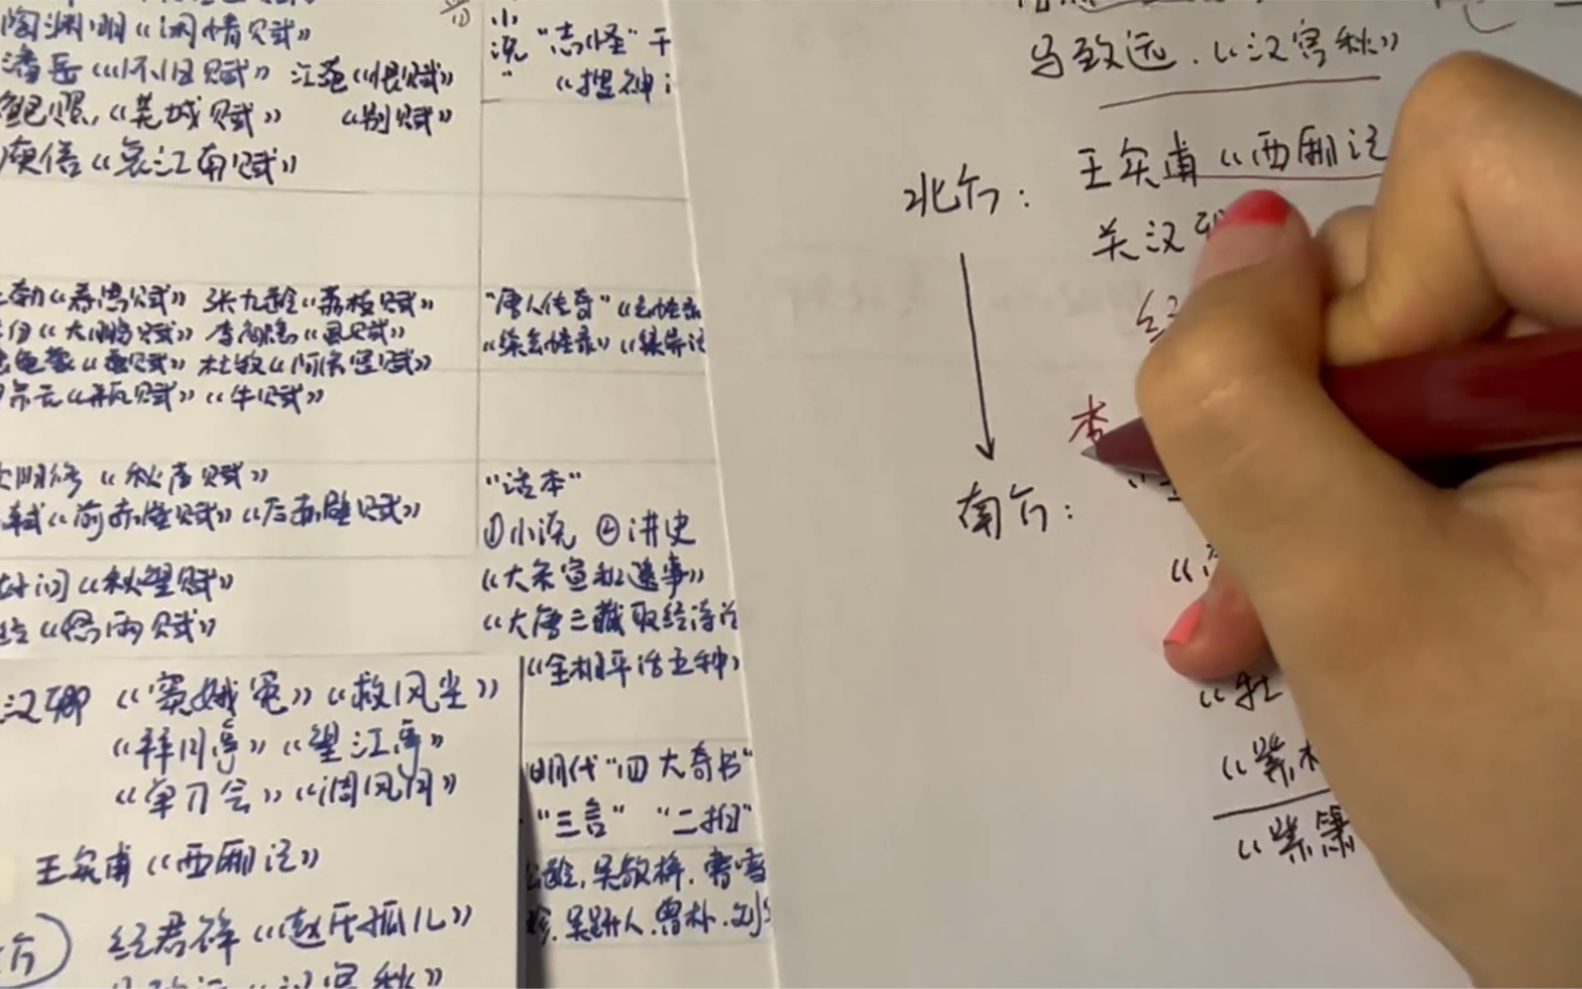 陶渊明《闲情赋》
潘岳《怀旧赋》 江淹《恨赋》
鲍照,《芜城赋》 《别赋》
庾信《哀江南赋》
勃《春思赋》 张九龄《荔枝赋》
白《大鹏赋》 李商隐《虱赋》
龟蒙《蚕赋》 杜牧《阿房宫赋》
宗元《瓶赋》《牛赋》
阳修《秋声赋》
轼《前赤壁赋》《后赤壁赋》
好问《秋望赋》
《悯雨赋》
汉卿《窦娥冤》《救风尘》
《拜月亭》《望江亭》
《单刀会》《调风月》
王实甫《西厢记》
纪君祥《赵氏孤儿》
《汉宫秋》
小说 "志怪" 干
《搜神
"唐人传奇"《玄怪录
《续玄怪录》《集异记
"话本"
①小说 ②讲史
《大宋宣和遗事》
《大唐三藏取经诗话
《全相平话五种》
明代"四大奇书"
"三言" "二拍"
吴敬梓.曹雪
吴趼人.曾朴.刘
马致远.《汉宫秋》
北方: 王实甫《西厢记
关汉卿
纪
李
南方:
《牡
《紫
《紫箫